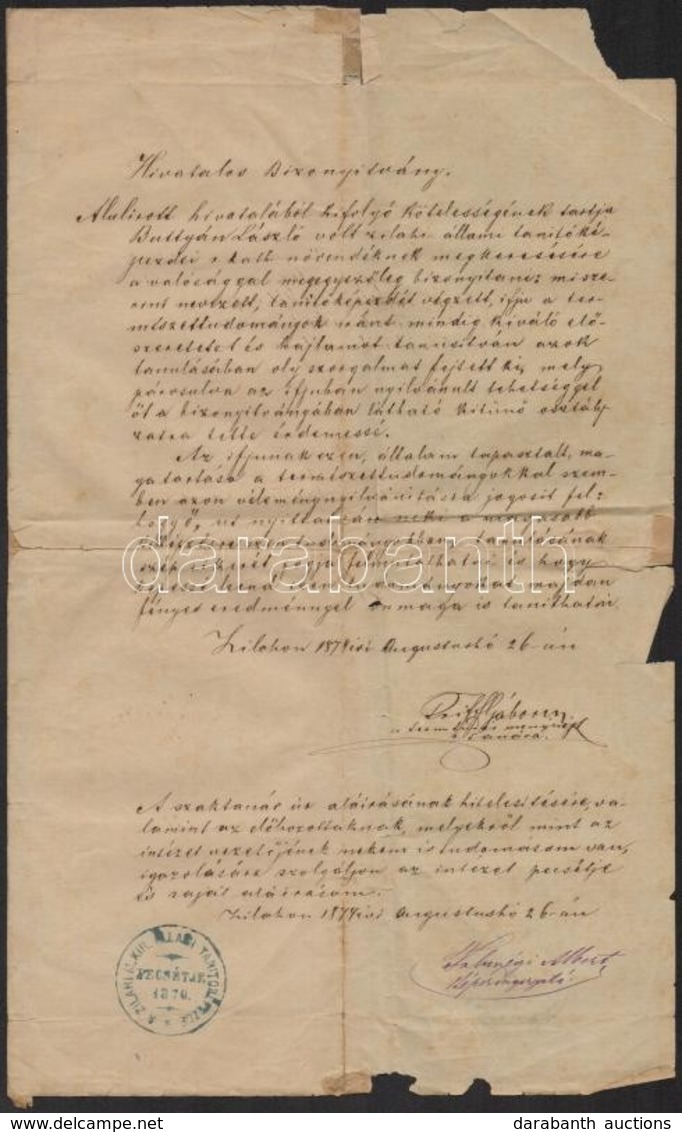 Hivatalos Bizonyitvány.
Alulirott hivatalából kifolyó kötelességének tartja
Battyán László volt zilahi állami tanitóké-
pezdei r. kath. növendéknek megkeresésére
a valósággal megegyezőleg bizonyitani: misze-
rint nevezett, tanitóképezdét végzett, ifju a ter-
mészettudományok iránt mindig kiváló elő-
szeretetet és hajlamot tanusitván azok
tanulásában oly szorgalmat fejtett ki, mely
párosulva az ifjuban nyilvánult tehetséggel
őt a bizonyitványában látható kitünő osztály-
zatra tette érdemessé.
Az ifjunak ezen, általam tapasztalt, ma-
gatartása a természettudományokkal szem-
ben azon véleménynyilvánitásra jogosit fel:
hogy,
tanulásának
szép sikerét fogja felmutathatni és hogy
majdan
fényes eredménnyel önmaga is tanithatni.
Zilahon 1874 évi Augusztushó 26-án
Gábor
tanára.
A szaktanár úr aláirásának hitelesitésére, va-
lamint az előhozottaknak, melyekről mint az
intézet vezetőjének nekem is tudomásom van,
igazolására szolgáljon az intézet pecsétje
és saját aláirásom.
Zilahon 1874 évi Augusztushó 26-án
Albert
A ZILAHI M. KIR. ÁLLAMI TANITÓKÉPEZDE
PECSÉTJE
1870.
darabanth
darabanth auctions